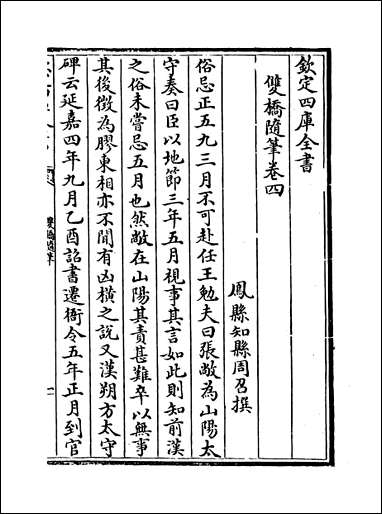 欽定四庫全書
雙橋隨筆卷四
鳳縣知縣周召撰
俗忌正五九三月不可赴任王勉夫曰張敞為山陽太
守奏曰臣以地節三年五月視事其言如此則知前漢
之俗未嘗忌五月也然敞在山陽其責甚難卒以無事
其後徴為膠東相亦不聞有凶横之說又漢朔方太守
碑云延嘉四年九月乙酉詔書遷衙令五年正月到官
雙橋隨筆